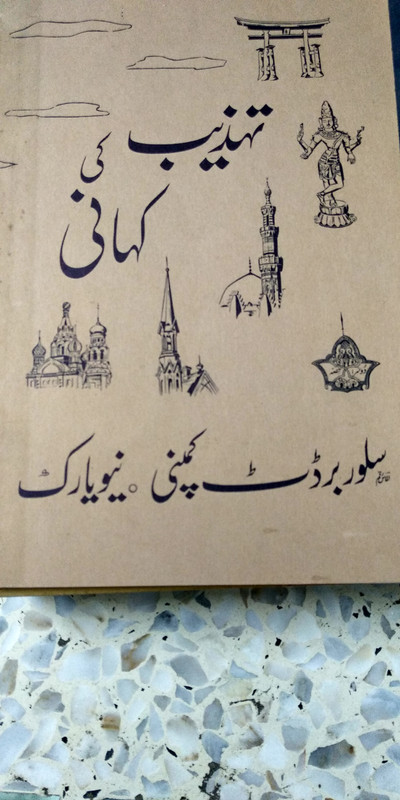 تہذیب کی
کہانی
سلور برڈٹ کمپنی ○ نیویارک